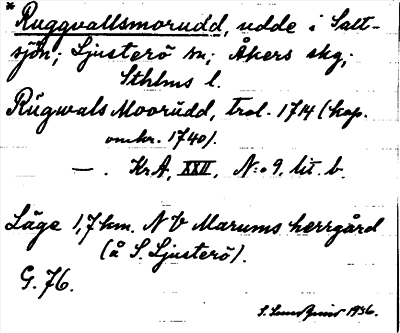 *Ruggvallsmorudd, udde i Salt-
sjön; Ljusterö sn; Åkers skg;
Sthlms l.
Rŭgwals Moorŭdd, trol. 1714 (kop.
omkr. 1740).
— . KrA, XXII, N:o 9, lit. b.
Läge 1,7 km. NV Marums herrgård
(å S. Ljusterö).
G. 76.
1936.